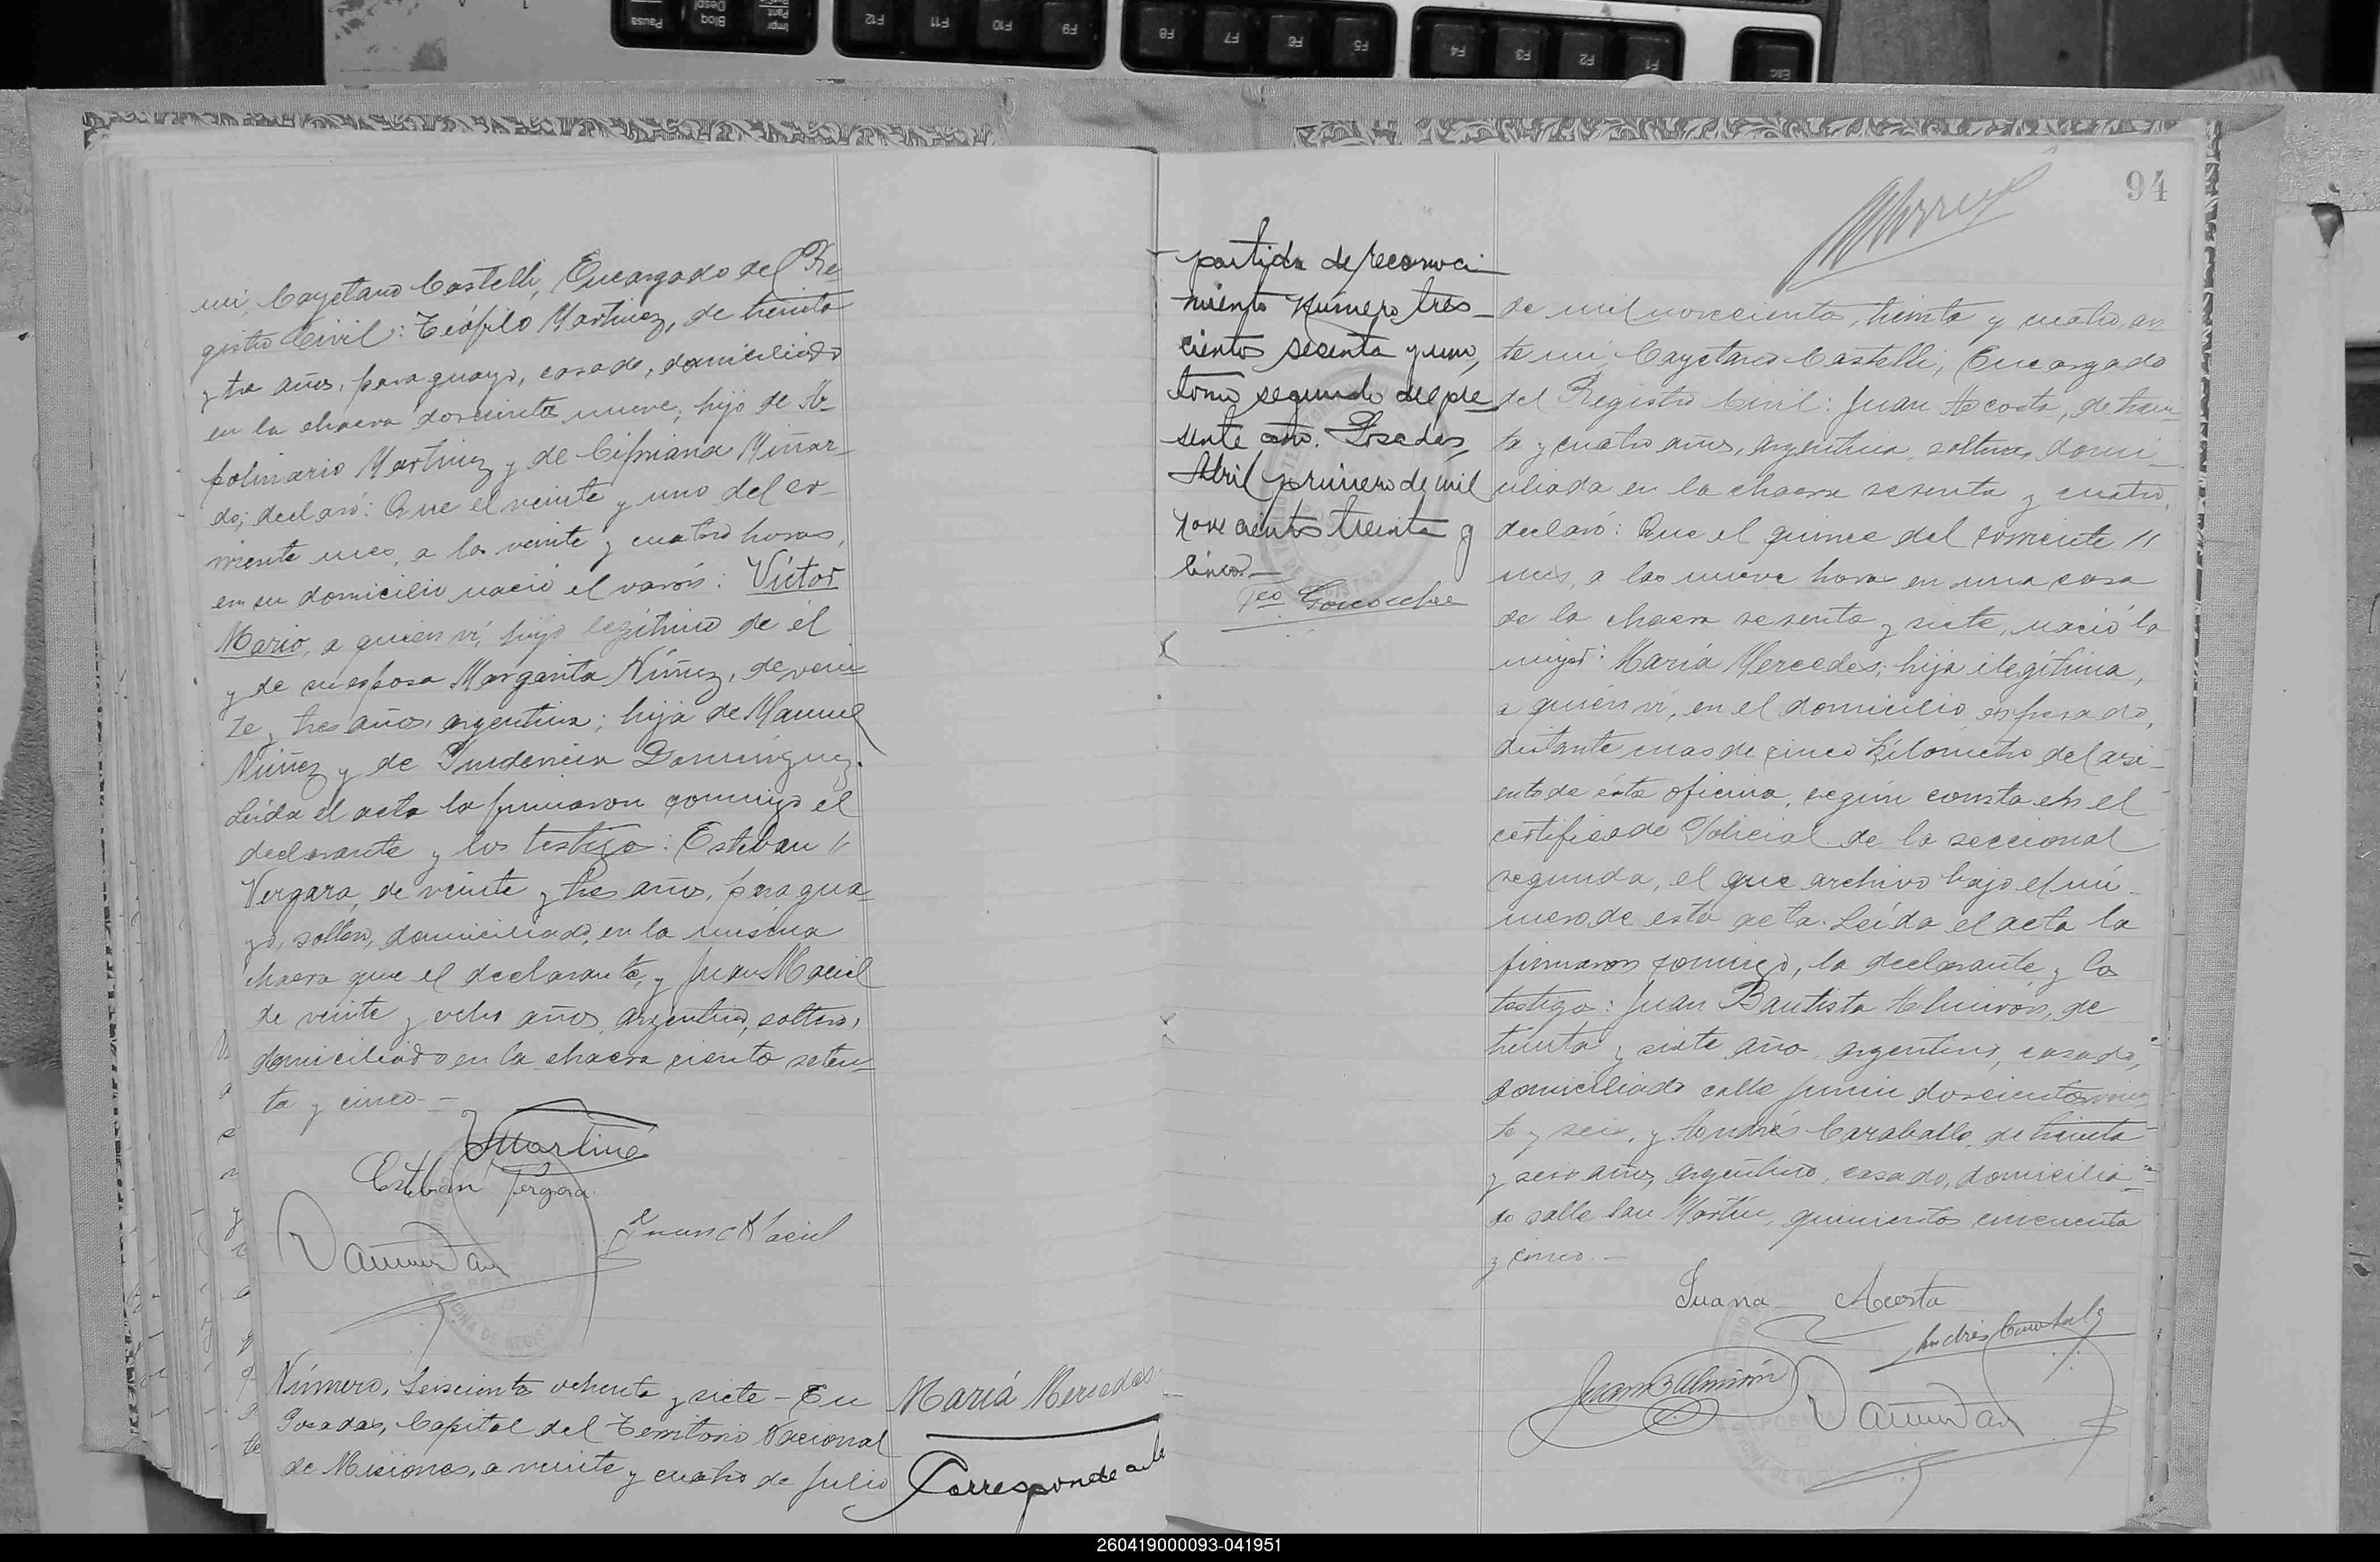 mi, Cayetano Castelli, Encargado del Re
gistro Civil: Teófilo Martinez, de treinta
y tres años, paraguayo, casado, domiciliado
en la chacra doscientos nueve; hijo de A-
polinario Martinez y de Cipriana Miñar-
do; declaró: Que el veinte y uno del co-
rriente mes, a las veinte y cuatro horas,
en su domicilio nació el varón: Víctor
Mario, a quien ví, hijo legítimo de él
y de su esposa Margarita Núñez, de vein-
te y tres años, argentina; hija de Manuel
Núñez y de Prudencia Domínguez.
Leída el acta la firmaron conmigo el
declarante y los testigos: Esteban "
Vergara, de veinte y tres años, paragua-
yo, soltero, domiciliado en la misma
chacra que el declarante, y Juan Maciel
de veinte y ocho años, argentino, soltero,
domiciliado en la chacra ciento seten-
ta y cinco.-
TMartine
Esteban Vergara
Juan Maciel
Número, Seiscientos ochenta y siete - En
Posadas, Capital del Territorio Nacional
de Misiones, a veinte y cuatro de Julio
María Mercedes
Corresponde a la
94
partida de reconoci-
miento Número tres-
cientos sesenta y uno,
tomo segundo del pre-
sente año. Posadas,
Abril primero de mil
novecientos treinta y
cinco.-
de mil novecientos, treinta y cuatro, an
te mí, Cayetano Castelli, Encargado
del Registro Civil: Juan Acosta, de trein-
ta y cuatro años, argentina, soltera, domi-
ciliada en la chacra sesenta y cuatro,
declaró: Que el quince del corriente "
mes, a las nueve horas en una casa
de la chacra sesenta y siete, nació la
mujer: María Mercedes; hija ilegítima,
a quién ví, en el domicilio expresado,
distante mas de cinco kilómetros del asi-
ento de ésta oficina, según consta en el
certificado Policial de la seccional
segunda, el que archivo bajo el nú-
mero de esta acta. Leída el acta la
firmaron conmigo, la declarante y los
testigos: Juan Bautista Almirón, de
treinta y siete años, argentino, casado,
domiciliado calle Junin doscientos vein-
te y seis, y Andrés Caraballo, de treinta
y seis años, argentino, casado, domicilia-
do calle San Martín, quinientos cincuenta
y cinco.-
Juana Acosta
Andrés Caraballo
Juan B Almirón
260419000093-041951